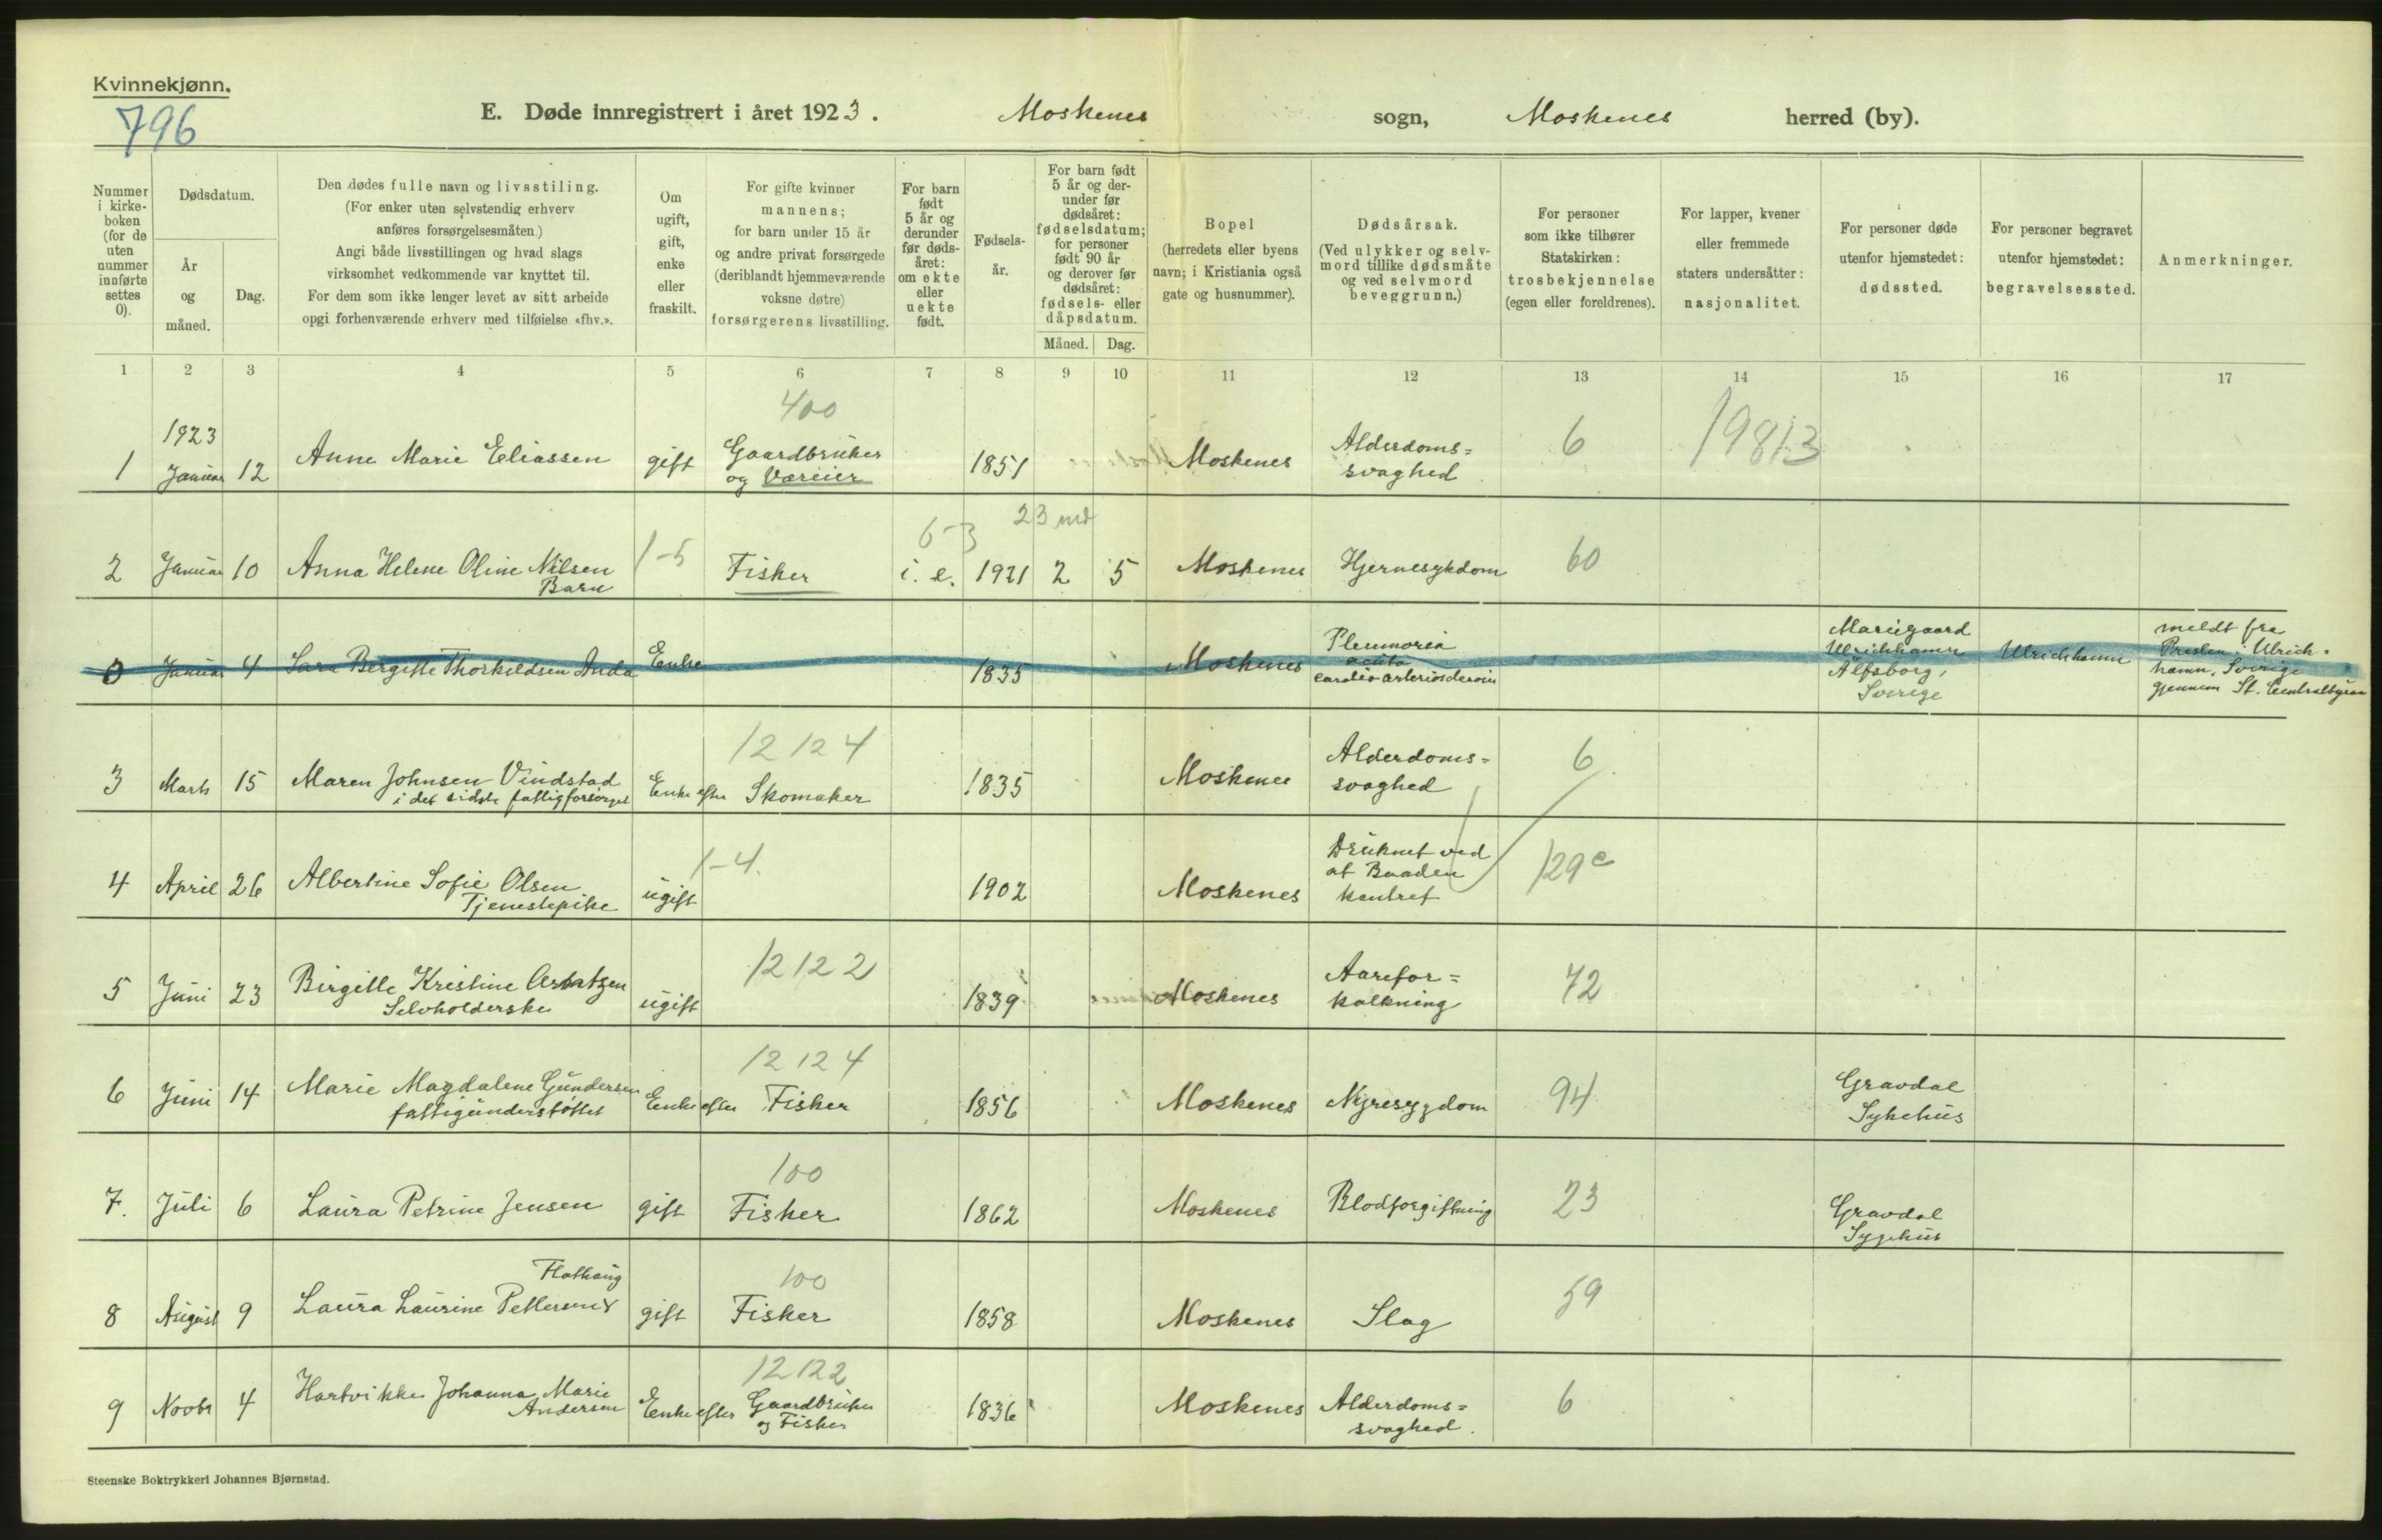 Kvinnekjønn.
796
E. Døde innregistrert i året 1923. Moskenes sogn, Moskenes herred (by).
Nummer i kirke- boken (for de uten nummer innførte settes 0).
Dødsdatum.
År og måned.
Dag.
Den dødes fulle navn og livsstiling.
(For enker uten selvstendig erhverv
anføres forsørgelsesmåten.)
Angi både livsstillingen og hvad slags
virksomhet vedkommende var knyttet til.
For dem som ikke lenger levet av sitt arbeide
opgi forhenværende erhverv med tilføielse «fhv.».
Om ugift, gift, enke eller fraskilt.
For gifte kvinner
mannens;
for barn under 15 år
og andre privat forsørgede
(deriblandt hjemmeværende
voksne døtre)
forsørgerens livsstilling.
For barn født 5 år og derunder før døds- året: om ekte eller uekte født.
Fødsels- år.
For barn født 5 år og der- under før dødsåret: fødselsdatum; for personer født 90 år og derover før dødsåret: fødsels- eller dåpsdatum.
Måned. Dag.
Bopel
(herredets eller byens
navn; i Kristiania også
gate og husnummer).
Dødsårsak.
(Ved ulykker og selv-
mord tillike dødsmåte
og ved selvmord
beveggrunn.)
For personer
som ikke tilhører
Statskirken:
trosbekjennelse
(egen eller foreldrenes).
For lapper, kvener
eller fremmede
staters undersåtter:
nasjonalitet.
For personer døde
utenfor hjemstedet:
dødssted.
For personer begravet
utenfor hjemstedet:
begravelsessted.
Anmerkninger.
1 2 3 4 5 6 7 8 9 10 11 12 13 14 15 16 17
400
1923
1 Januar 12 Anne Marie Eliassen gift Gaardbruker 1851 Moskenes Alderdoms= 6 19813
og Væreier svaghed
6-3 23 md
2 Januar 10 Anna Helene Oline Nilsen 1-5 Fisker i. e. 1921 2 5 Moskenes Hjernesykdom 60
Barn
0 Januar 4 Sara Bergitte Thorkildsen Anda Enke 1835 Moskenes
acuta
Mariegaard
Ulrichhamn
Alfsborg,
Sverige
Ulrichhamn
meldt fra
Presten i Ulrich-
hamn, Sverige
gjennem St. Centralbyraa
12 12 4
3 Marts 15 Maren Johnsen Vindstad Enke efter Skomaker 1835 Moskenes Alderdoms= 6
i det sidste fattigforsørget svaghed
1-4.
4 April 26 Albertine Sofie Olsen ugift 1902 Moskenes Druknet ved 129e
Tjenestepike at Baaden
kantret
12 12 2
5 Juni 23 Birgitte Kristine ugift 1839 Moskenes Aarefor= 72
Selvholderske kalkning
12 12 4
6 Juni 14 Marie Magdalene Gundersen Enke efter Fisker 1856 Moskenes Nyresygdom 94 Gravdal
fattigunderstøttet Sykehus
100
7. Juli 6 Laura Petrine Jensen gift Fisker 1862 Moskenes Blodforgiftning 23 Gravdal
Sygehus
Flathaug 100
8 August 9 Laura Laurine gift Fisker 1858 Moskenes Slag 59
12 12 2
9 Novbr 4 Hartvikke Johanna Marie Enke efter Gaardbruker 1836 Moskenes Alderdoms= 6
Andersen og Fisker svaghed.
Steenske Boktrykkeri Johannes Bjørnstad.